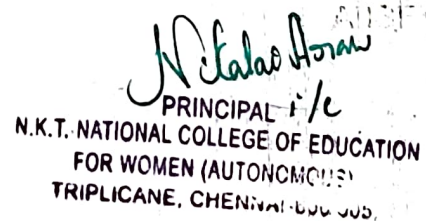 PRINCIPAL i/c
N.K.T. NATIONAL COLLEGE OF EDUCATION
FOR WOMEN (AUTONOMOUS)
TRIPLICANE, CHENNAI-600 005.